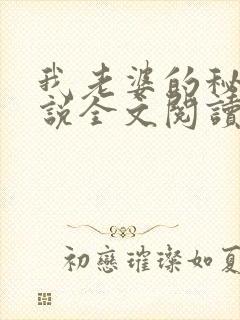 我老婆的秘
説全文閱讀
初戀璀璨如夏